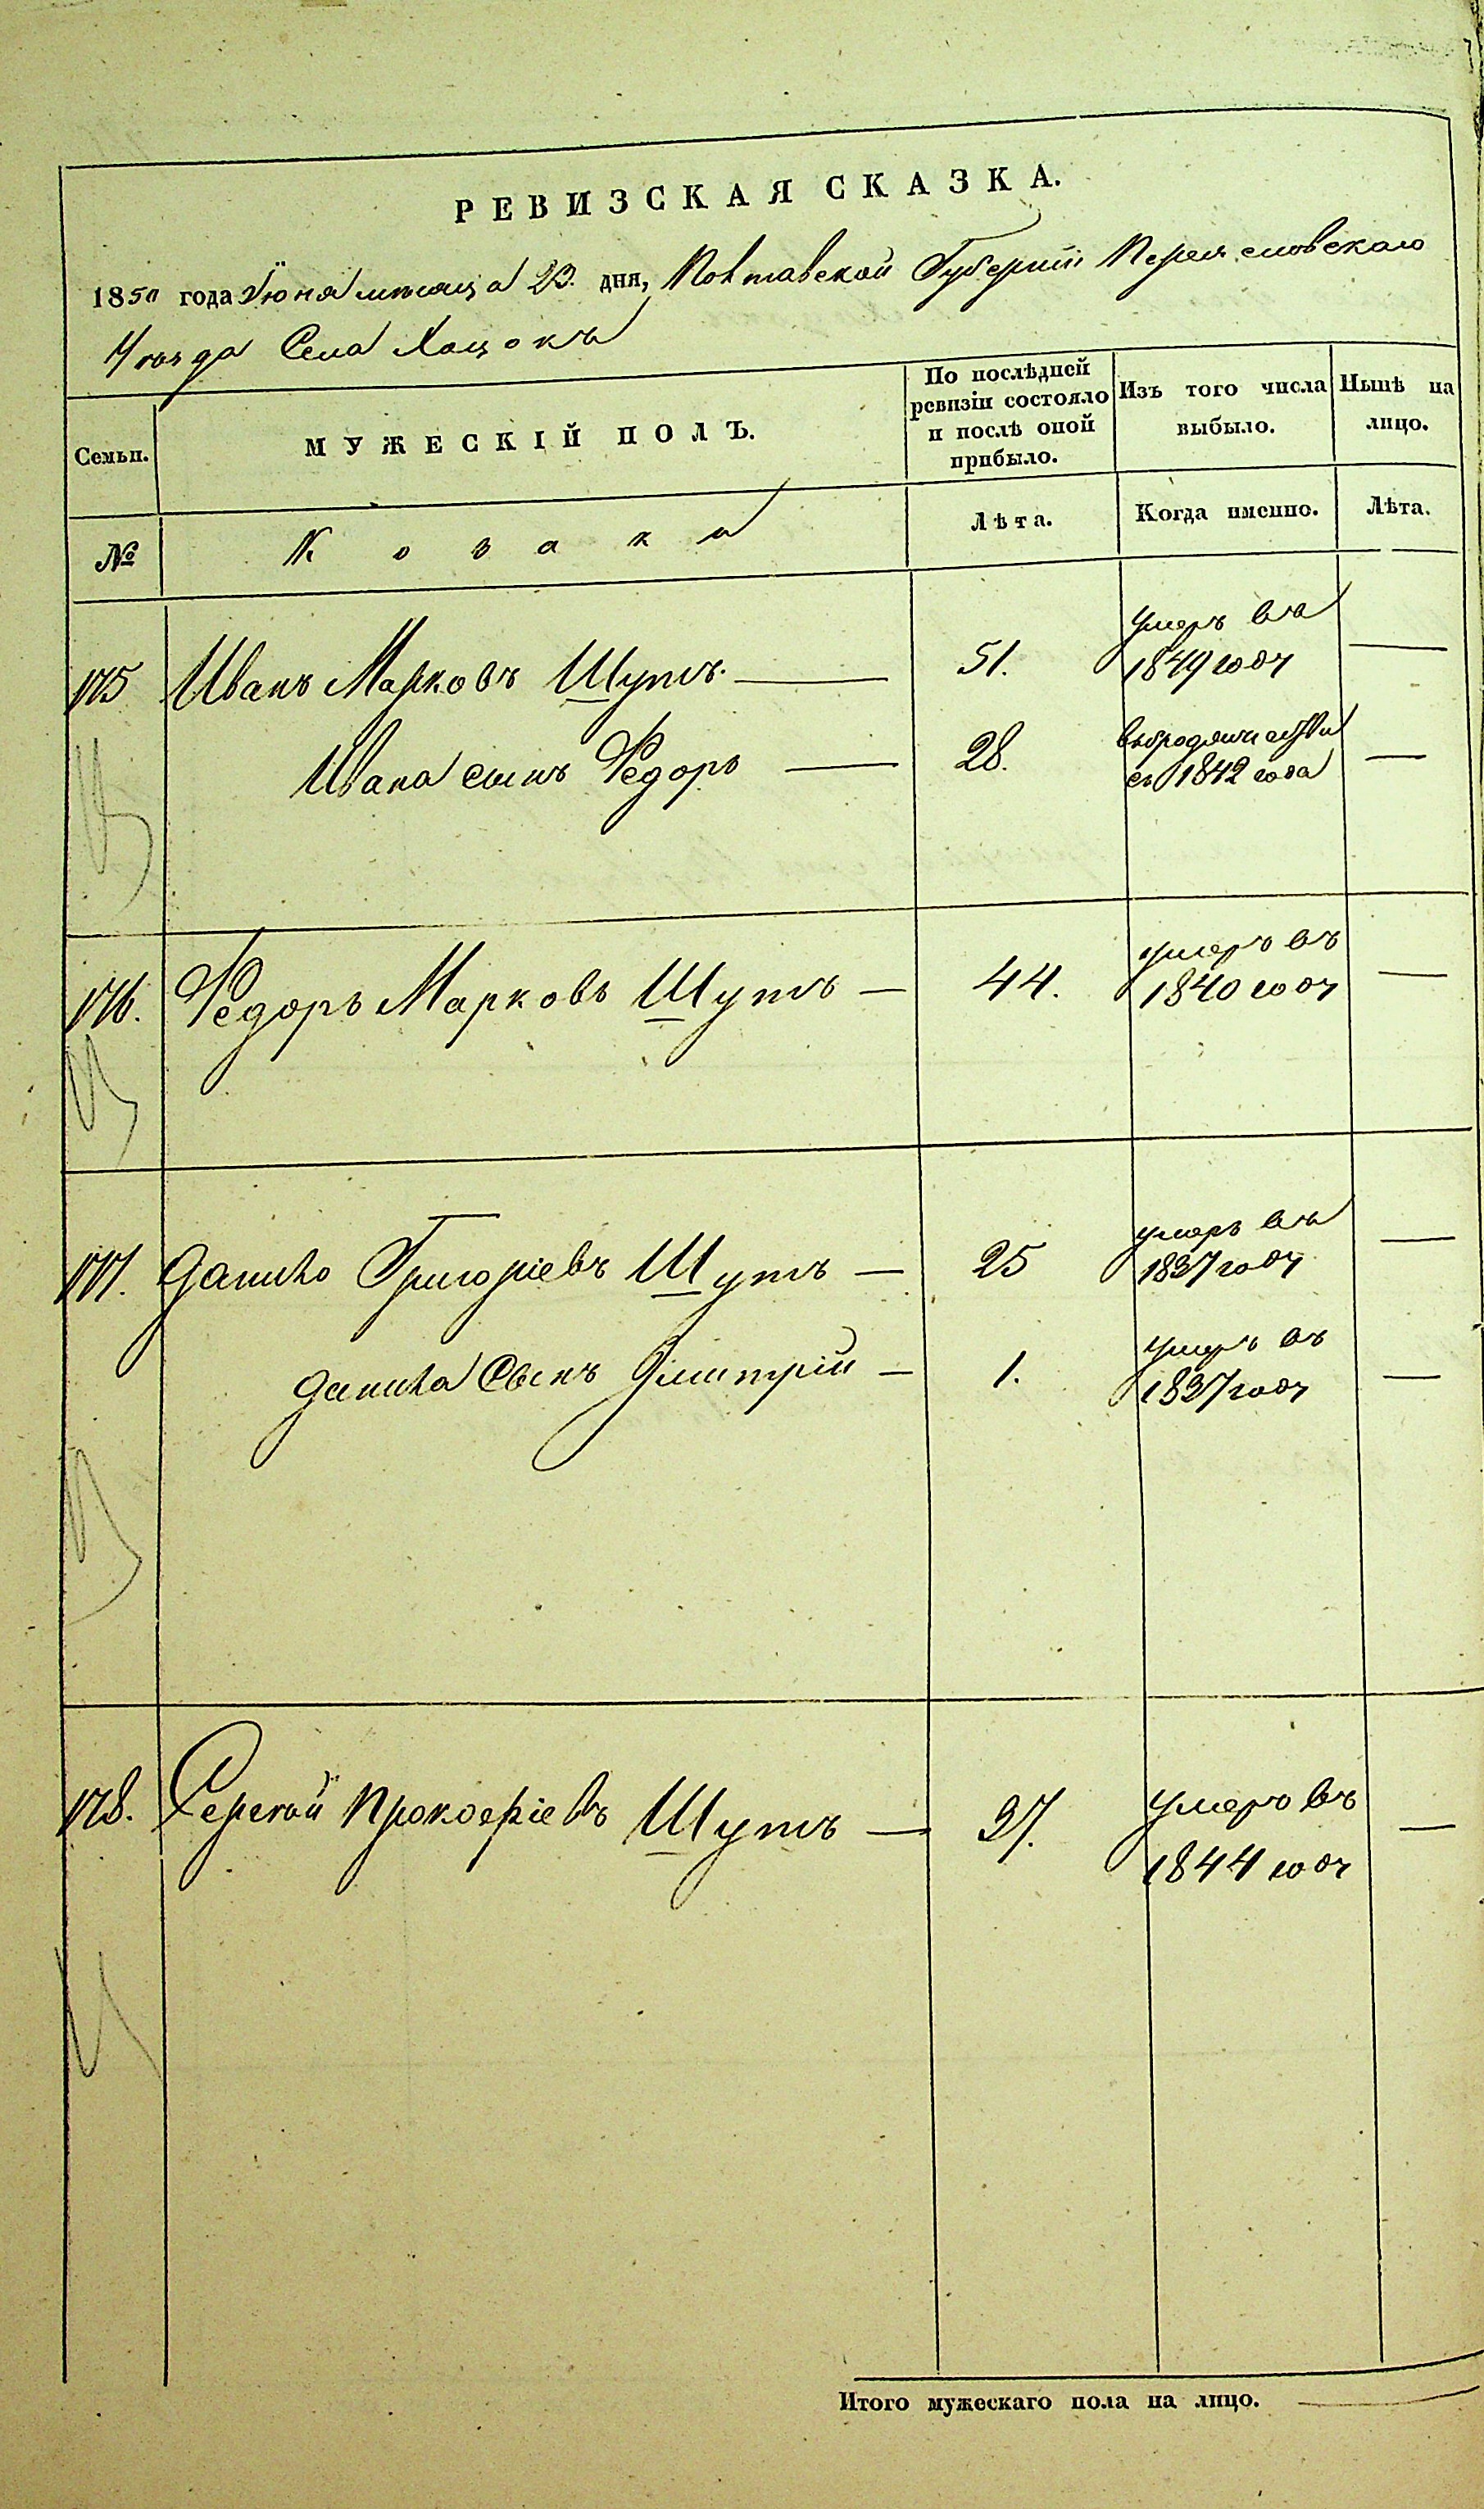 РЕВИЗСКАЯ СКАЗКА.
1850 года Іюня мѣсяца 23. дня, Полтавской Губерніи Переяславскаго
Уѣзда Села Хоцокъ
Семьи.
МУЖЕСКІЙ ПОЛЪ.
По послѣдней ревизіи состояло и послѣ оной прибыло.
Изъ того числа выбыло.
Нынѣ на лицо.
№ Козаки Лѣта. Когда именно. Лѣта.
175 Иванъ Марковъ Шутъ. — 51. умеръ въ 1849 году —
Ивана сынъ Федоръ — 28. въ бродяжествѣ съ 1842 года —
176. Федоръ Марковъ Шутъ — 44. умеръ въ 1840 году —
177. Данило Григоріевъ Шутъ — 25 умеръ въ 1837 году —
Данила Сынъ Дмитрій — 1. умеръ въ 1837 году —
178. Сергѣй Прокофіевъ Шутъ — 37. умеръ въ 1844 году —
Итого мужескаго пола на лицо. —